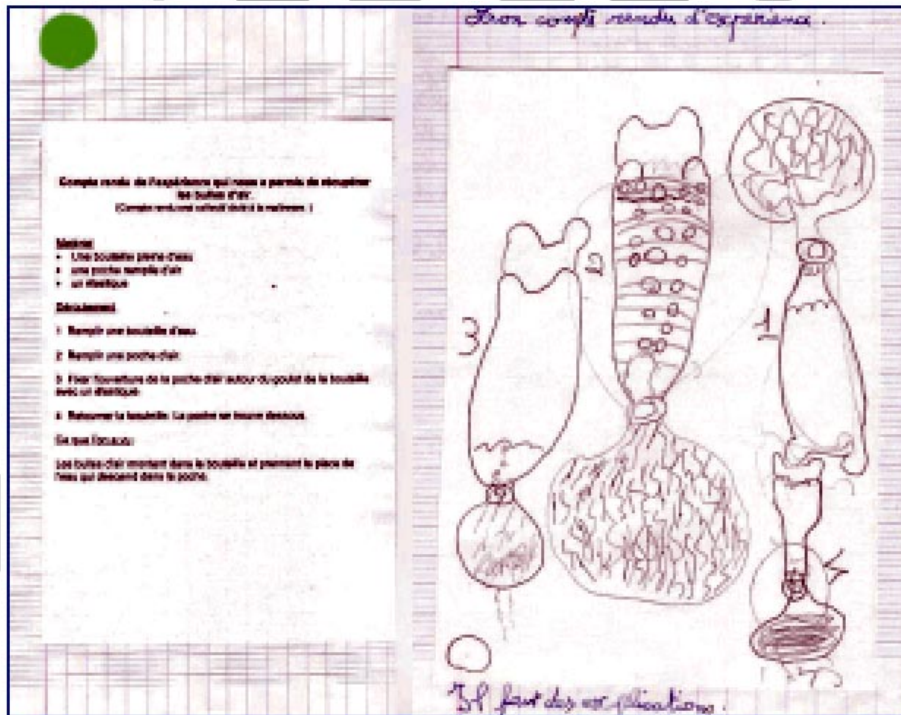 Compte rendu de l'expérience qui nous a permis de récupérer
les bulles d'air.
(Compte rendu collectif dicté à la maîtresse.)
Matériel
• Une bouteille pleine d'eau
• une poche remplie d'air
• un élastique
Déroulement
1 Remplir une bouteille d'eau
2 Remplir une poche d'air.
3 Fixer l'ouverture de la poche d'air autour du goulot de la bouteille
avec un élastique.
4 Retourner la bouteille. La poche se trouve dessous.
Ce que j'ai vu
Les bulles d'air montent dans la bouteille et prennent la place de
l'eau qui descend dans la poche.
Mon compte rendu d'expérience.
3
2
1
4
Il faut des explications.